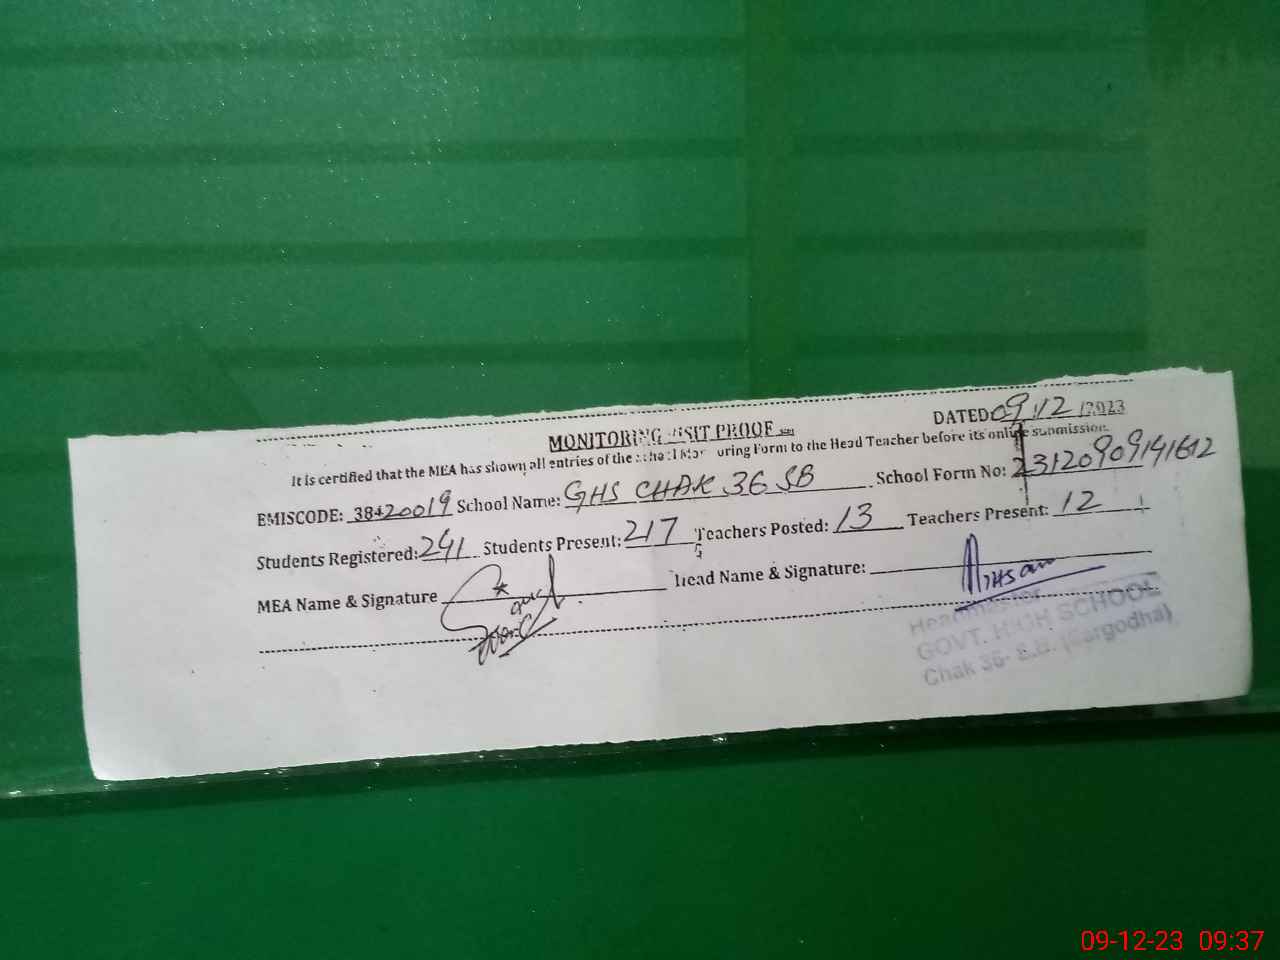 DATED 09/12/2023
MONITORING VISIT PROOF
It is certified that the MEA has shown all entries of the School Monitoring Form to the Head Teacher before its online submission.
EMISCODE: 38420019 School Name: GHS CHAK 36 SB School Form No: 23120909141612
Students Registered: 241 Students Present: 217 Teachers Posted: 13 Teachers Present: 12
MEA Name & Signature Head Name & Signature: Ahsan
Headmaster
GOVT. HIGH SCHOOL
Chak 36- S.B. (Sargodha)
09-12-23 09:37